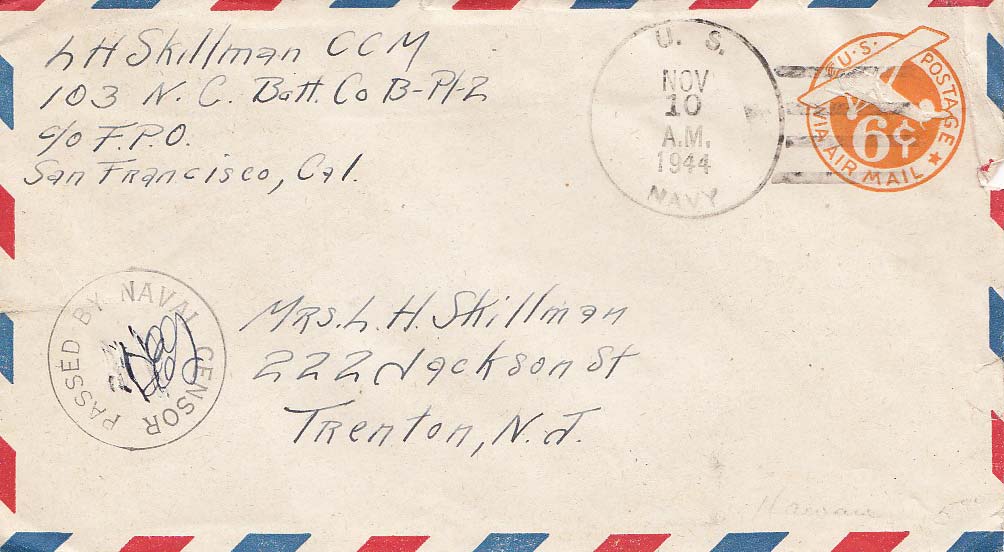 L H Skillman CCM
103 N. C. Batt. Co B-Plt-2
c/o F.P.O.
San Francisco, Cal.
U. S.
NOV
10
A.M.
1944
NAVY
U.S. POSTAGE
6¢
VIA AIR MAIL
PASSED BY NAVAL CENSOR
Mrs. L. H. Skillman
222 Jackson St
Trenton, N. J.